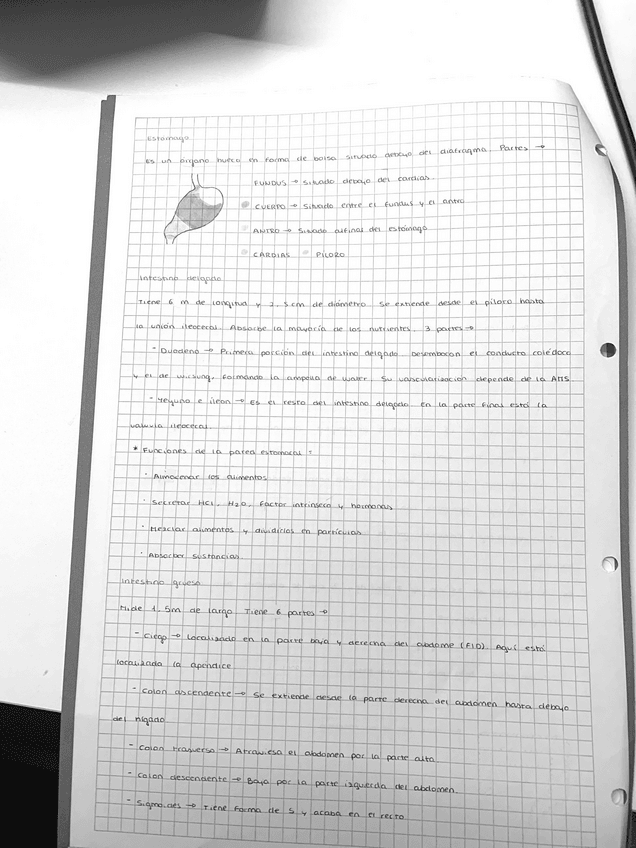 Estómago
Es un órgano hueco en forma de bolsa situado debajo del diafragma. Partes →
FUNDUS → Situado debajo del cardias.
CUERPO → Situado entre el fundus y el antro
ANTRO → Situado al final del estómago
CARDIAS PÍLORO
Intestino delgado
Tiene 6 m de longitud y 2.5cm de diámetro. Se extiende desde el píloro hasta
la unión ileocecal. Absorbe la mayoría de los nutrientes. 3 partes →
- Duodeno → Primera porción del intestino delgado. Desembocan el conducto colédoco
y el de wirsung, formando la ampolla de water. Su vascularización depende de la AMS.
- Yeyuno e íleon → Es el resto del intestino delgado. en la parte final está la
valvula ileocecal.
* Funciones de la pared estomacal:
· Almacenar los alimentos
· Secretar HCl, H2O, Factor intrínseco y hormonas
· Mezclar alimentos y dividirlos en partículas
· Absorber sustancias
Intestino grueso
Mide 1.5m de largo. Tiene 6 partes →
- Ciego → Localizado en la parte baja y derecha del abdome (FID). Aquí está
localizada la apendice
- Colon ascendente → Se extiende desde la parte derecha del abdomen hasta debajo
del hígado
- Colon trasverso → Atraviesa el abdomen por la parte alta.
- Colon descendente → Baja por la parte izquierda del abdomen.
- Sigmoides → Tiene forma de S y acaba en el recto